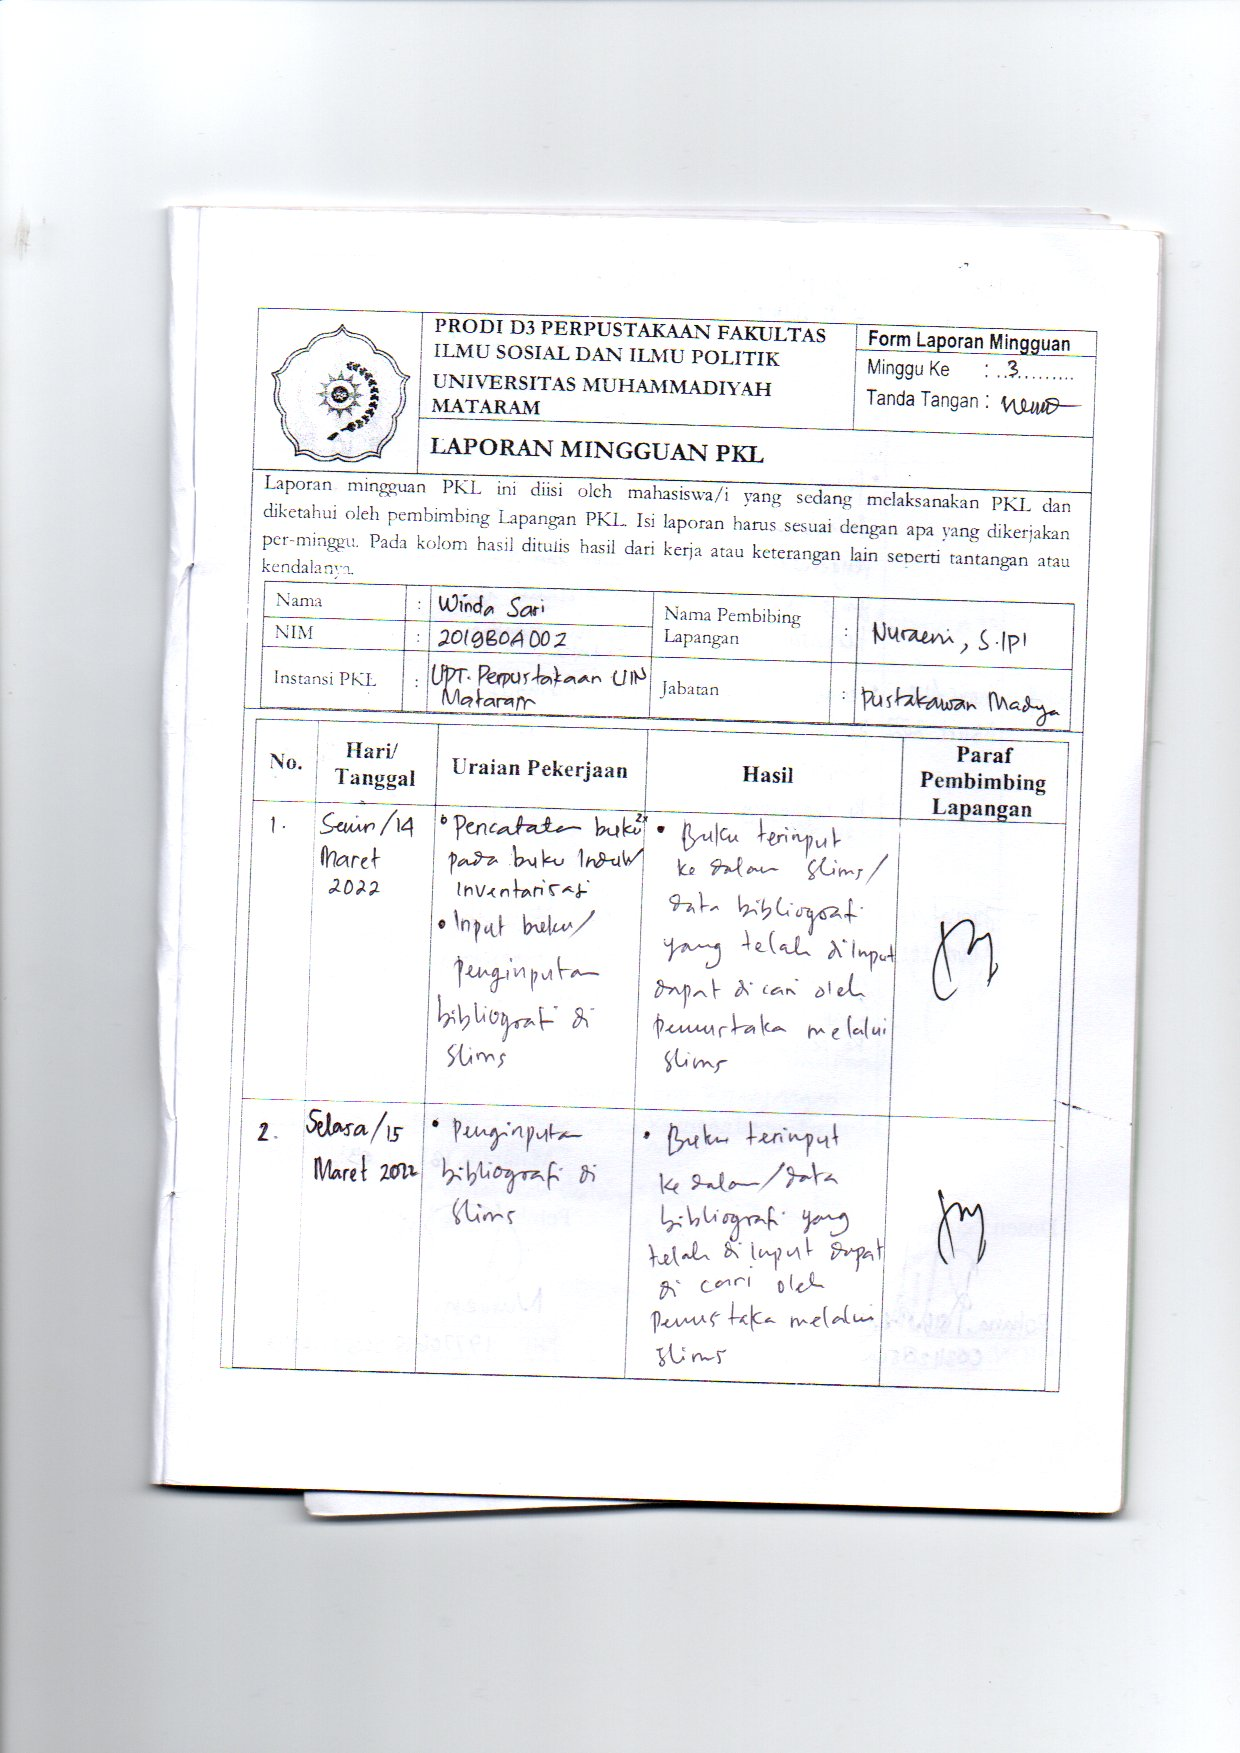 PRODI D3 PERPUSTAKAAN FAKULTAS
ILMU SOSIAL DAN ILMU POLITIK
UNIVERSITAS MUHAMMADIYAH
MATARAM
LAPORAN MINGGUAN PKL
Form Laporan Mingguan
Minggu Ke : ..3.........
Tanda Tangan :
Laporan mingguan PKL ini diisi oleh mahasiswa/i yang sedang melaksanakan PKL dan
diketahui oleh pembimbing Lapangan PKL. Isi laporan harus sesuai dengan apa yang dikerjakan
per-minggu. Pada kolom hasil ditulis hasil dari kerja atau keterangan lain seperti tantangan atau
kendalanya.
Nama : Winda Sari
NIM : 2019B0A002
Instansi PKL : UPT. Perpustakaan UIN
Mataram
Nama Pembibing
Lapangan : Nuraeni, S.IPI
Jabatan : Pustakawan Madya
No.
Hari/
Tanggal
Uraian Pekerjaan
Hasil
Paraf
Pembimbing
Lapangan
1.
Senin/14
Maret
2022
• Pencatatan buku2x
pada buku Induk/
Inventarisasi
• Input buku/
penginputan
bibliografi di
Slims
• Buku terinput
ke dalam Slims/
data bibliografi
yang telah di input
dapat di cari oleh
Pemustaka melalui
Slims
2.
Selasa/15
Maret 2022
• Penginputan
bibliografi di
Slims
• Buku terinput
ke dalam/data
bibliografi yang
telah di input dapat
di cari oleh
Pemustaka melalui
Slims